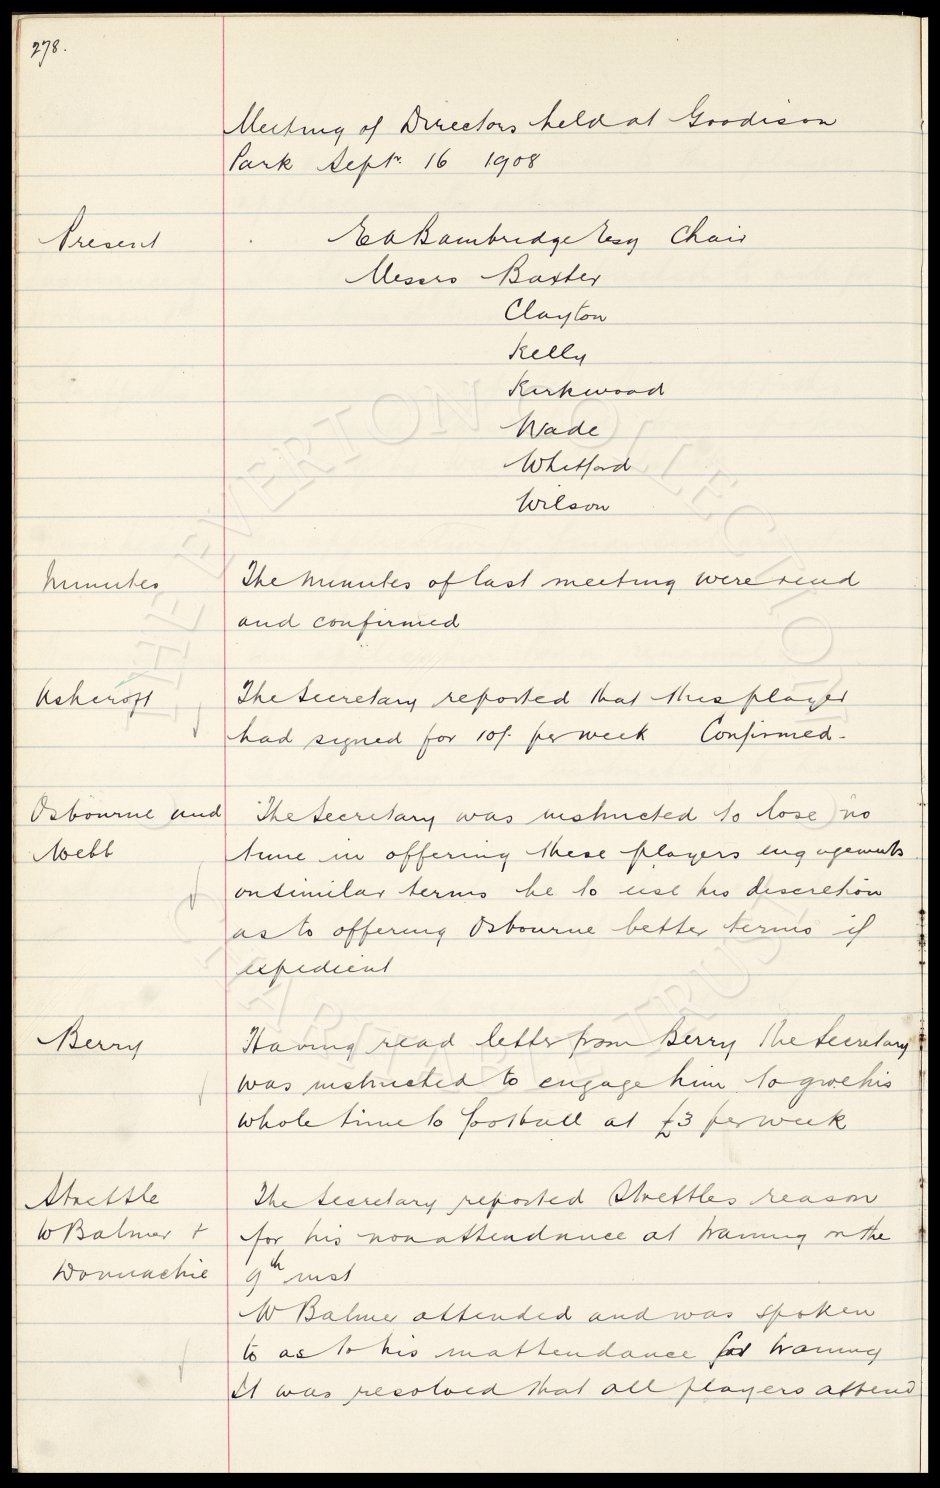 278.
Meeting of Directors held at Goodison
Park Septr. 16 1908
Present
E A Bainbridge Esq Chair
Messrs Baxter
Clayton
Kelly
Kirkwood
Wade
Whitford
Wilson
Minutes
The Minutes of last meeting were read
and confirmed
Ashcroft
The Secretary reported that this player
had signed for 10/- per week Confirmed -
Osbourne and
Webb
The Secretary was instructed to lose no
time in offering these players engagements
on similar terms he to use his discretion
as to offering Osbourne better terms if
expedient
Berry
Having read letter from Berry the Secretary
was instructed to engage him to give his
whole time to football at £3 per week
Strettle
W Balmer +
Donnachie
The Secretary reported Strettles reason
for his nonattendance at training on the
9th inst
W Balmer attended and was spoken
to as to his inattendance for training
It was resolved that all players attend
THE EVERTON COLLECTION
CHARITABLE TRUST